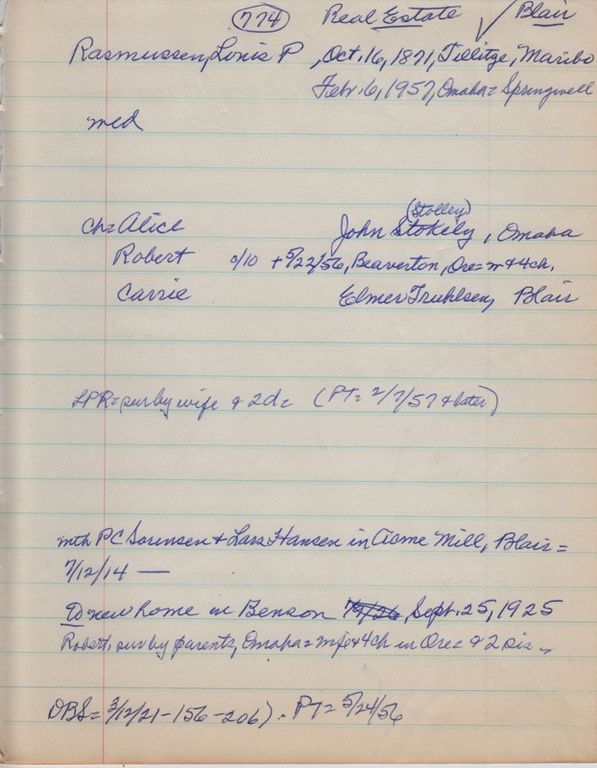 774 Real Estate ✓ Blair
Rasmussen, Louis P , Oct. 16, 1871, Tillitze, Maribo
Febr. 6, 1957, Omaha = Springwell
med
(Stolley)
ch = Alice John Stokely, Omaha
Robert c/10 + 5/22/56, Beaverton, Ore = m + 4ch.
Carrie Elmer Truhlsen, Blair
LPR = surby wife + 2d = (PT = 2/7/57 + later)
mth PC Sorensen + Lars Hansen in Acme Mill, Blair =
7/12/14 —
To new home in Benson Sept. 25, 1925
Robert, sur by parents, Omaha = + 4ch in Ore = + 2 sis
DBS = 3/12/21-156-206). PT = 5/24/56